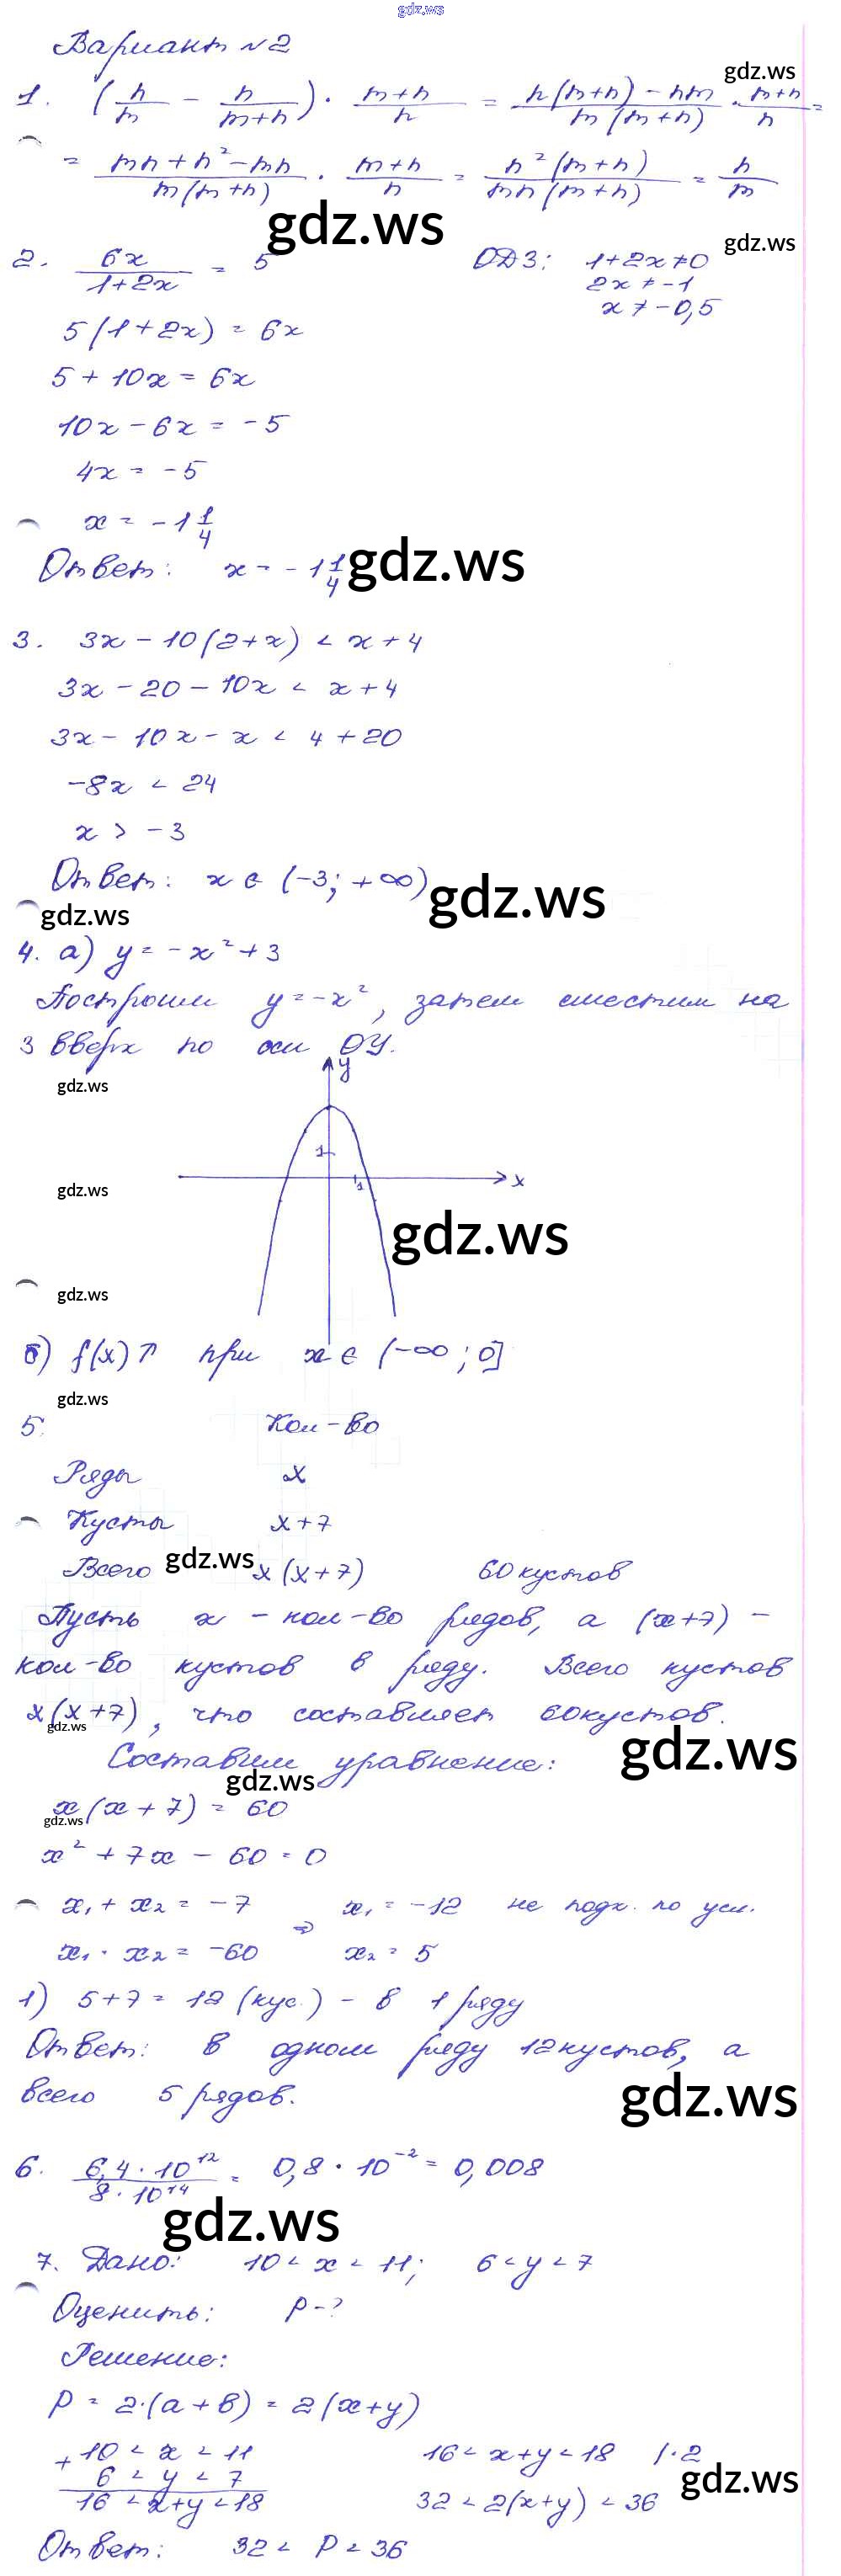 gdz.ws
Вариант №2
gdz.ws
1. (n/m - n/(m+n)) · (m+n)/n = (n(m+n) - nm)/(m(m+n)) · (m+n)/n =
= (mn + n² - mn)/(m(m+n)) · (m+n)/n = n²(m+n)/(mn(m+n)) = n/m
gdz.ws
gdz.ws
2. 6x/(1+2x) = 5 ОДЗ: 1+2x≠0
2x ≠ -1
x ≠ -0,5
5(1+2x) = 6x
5 + 10x = 6x
10x - 6x = -5
4x = -5
x = -1 1/4
Ответ: x = -1 1/4
gdz.ws
3. 3x - 10(2+x) < x+4
3x - 20 - 10x < x+4
3x - 10x - x < 4+20
-8x < 24
x > -3
Ответ: x ∈ (-3; +∞)
gdz.ws
gdz.ws
4. а) y = -x² + 3
Построим y = -x², затем сместим на
3 вверх по оси OY.
y
gdz.ws
1
gdz.ws
1 x
gdz.ws
gdz.ws
б) f(x)↑ при x ∈ (-∞; 0]
gdz.ws
5. Кол-во
Ряды x
Кусты x+7
Всего gdz.ws x(x+7) 60 кустов
Пусть x - кол-во рядов, а (x+7) -
кол-во кустов в ряду. Всего кустов
x(x+7), что составляет 60 кустов.
gdz.ws
gdz.ws
Составим уравнение:
gdz.ws
x(x+7) = 60
gdz.ws
x² + 7x - 60 = 0
x₁ + x₂ = -7 ⇒ x₁ = -12 не подх. по усл.
x₁ · x₂ = -60 x₂ = 5
1) 5+7 = 12 (кус.) - в 1 ряду
Ответ: в одном ряду 12 кустов, а
всего 5 рядов.
gdz.ws
6. (6,4 · 10¹²)/(8 · 10¹⁴) = 0,8 · 10⁻² = 0,008
gdz.ws
7. Дано: 10 < x < 11; 6 < y < 7
Оценить: P - ?
Решение:
P = 2·(a+b) = 2(x+y)
+ 10 < x < 11 16 < x+y < 18 |·2
6 < y < 7
gdz.ws
16 < x+y < 18 32 < 2(x+y) < 36
Ответ: 32 < P < 36